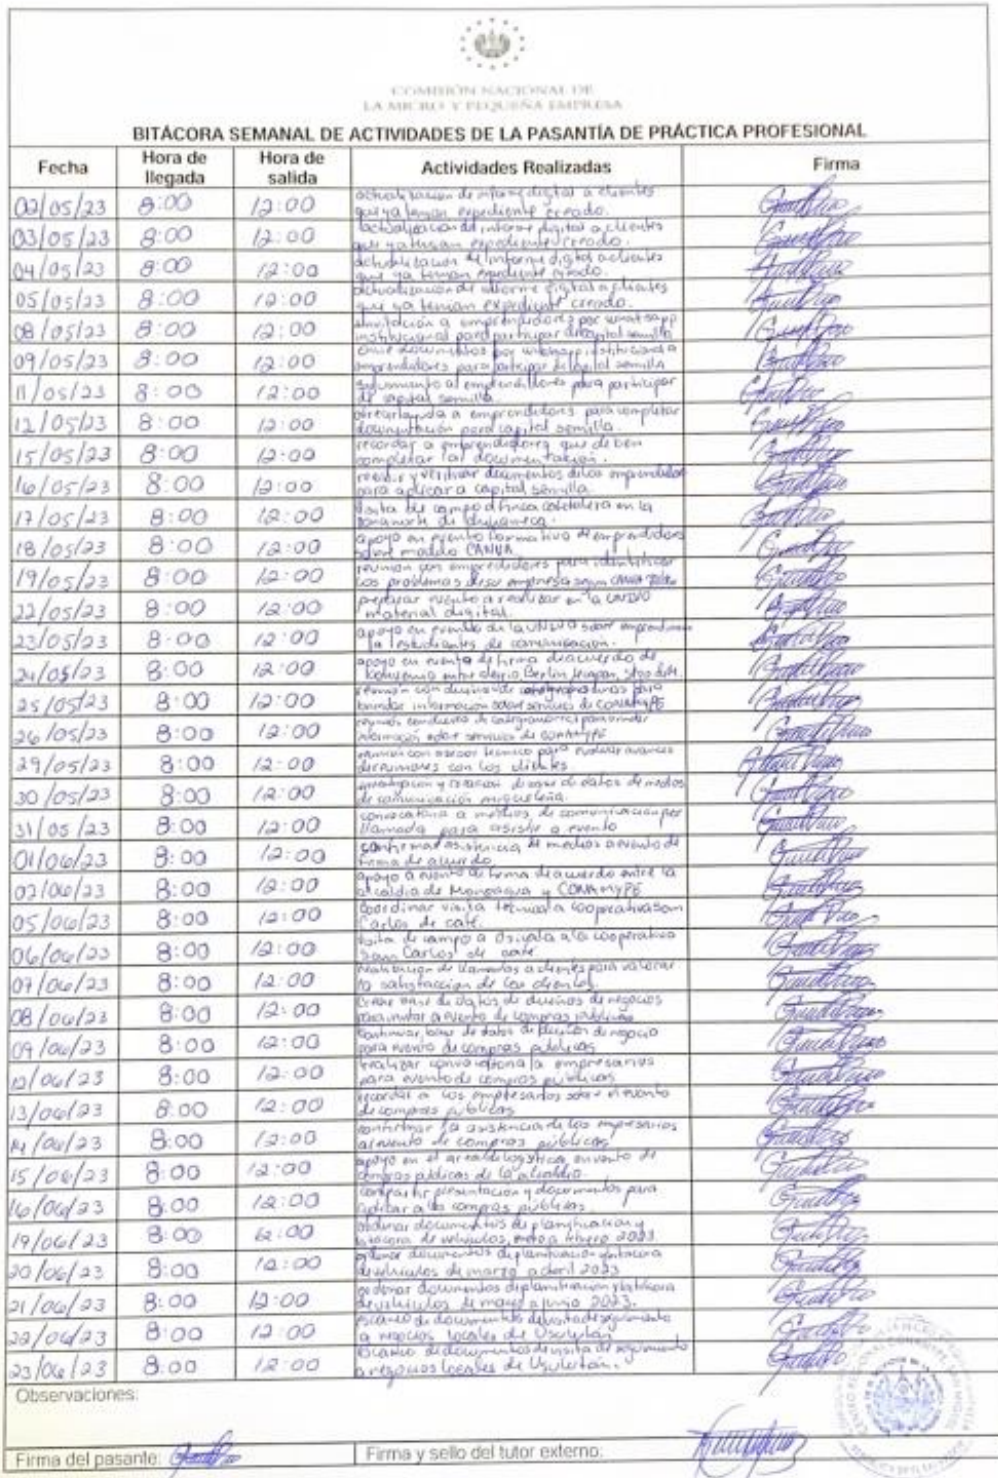 COMISIÓN NACIONAL DE
LA MICRO Y PEQUEÑA EMPRESA
BITÁCORA SEMANAL DE ACTIVIDADES DE LA PASANTÍA DE PRÁCTICA PROFESIONAL
Fecha Hora de llegada Hora de salida Actividades Realizadas Firma
02/05/23 8:00 12:00 actualización de informe digital a clientes
que ya tengan expediente creado.
03/05/23 8:00 12:00 actualización de informe digital a clientes
que ya tengan expediente creado.
04/05/23 8:00 12:00 actualización de informe digital a clientes
que ya tenian expediente creado.
05/05/23 8:00 12:00 actualización de informe digital a clientes
que ya tenian expediente creado.
08/05/23 8:00 12:00 invitación a emprendedores por whatsapp
institucional para participar de capital semilla
09/05/23 8:00 12:00 documentos por whatsapp institucional a
emprendedores para participar de capital semilla
11/05/23 8:00 12:00 emprendedores para participar
de capital semilla.
12/05/23 8:00 12:00 a emprendedores para completar
documentación para capital semilla.
15/05/23 8:00 12:00 recordar a emprendedores que deben
completar la documentación.
16/05/23 8:00 12:00 y verificar documentos de los emprendedores
para aplicar a capital semilla
17/05/23 8:00 12:00 visita de campo a finca cafetalera en la
zona norte de
18/05/23 8:00 12:00 apoyo en evento formativo de emprendedores
sobre modelo CANVA.
19/05/23 8:00 12:00 reunion con emprendedores para identificar
los problemas de su empresa segun CANVA
22/05/23 8:00 12:00 preparar evento a realizar en la UNIVO
material digital.
23/05/23 8:00 12:00 apoyo en evento de la UNIVO sobre
a estudiantes de comunicación.
24/05/23 8:00 12:00 apoyo en evento de firma de acuerdo de
convenio entre Berlín,
25/05/23 8:00 12:00 reunion con
brindar información sobre servicios de CONAMYPE
26/05/23 8:00 12:00 reunion
información sobre servicios de CONAMYPE
29/05/23 8:00 12:00 reunion con asesor tecnico para evaluar avances
de reuniones con los clientes
30/05/23 8:00 12:00 investigación y creación de base de datos de medios
de comunicación migueleña.
31/05/23 8:00 12:00 convocatoria a medios de comunicación por
llamada para asistir a evento
01/06/23 8:00 12:00 confirmar asistencia de medios a evento de
firma de acuerdo
02/06/23 8:00 12:00 apoyo a evento de firma de acuerdo entre la
alcaldia de Moncagua y CONAMYPE
05/06/23 8:00 12:00 coordinar visita tecnica a cooperativa San
Carlos de café.
06/06/23 8:00 12:00 visita de campo a Osicala a la cooperativa
San Carlos de café
07/06/23 8:00 12:00 realización de llamadas a clientes para valorar
la satisfacción de los clientes.
08/06/23 8:00 12:00 crear base de datos de dueños de negocios
para invitar a evento de compras públicas
09/06/23 8:00 12:00 continuar base de datos de dueños de negocio
para evento de compras públicas
12/06/23 8:00 12:00 realizar convocatoria a empresarios
para evento de compras públicas
13/06/23 8:00 12:00 recordar a los empresarios sobre el evento
de compras públicas
14/06/23 8:00 12:00 confirmar la asistencia de los empresarios
al evento de compras públicas
15/06/23 8:00 12:00 apoyo en el area de logística en evento de
compras públicas de la alcaldia.
16/06/23 8:00 12:00 compartir presentación y documentos para
a las compras públicas.
19/06/23 8:00 12:00 ordenar documentos de planificación y
bitacora de vehículos, enero a febrero 2023.
20/06/23 8:00 12:00 ordenar documentos de planificación y bitacora
de vehículos de marzo a abril 2023
21/06/23 8:00 12:00 ordenar documentos de planificación y bitacora
de vehículos de mayo a junio 2023.
22/06/23 8:00 12:00 escaneo de documentos de visita de seguimiento
a negocios locales de Usulután
23/06/23 8:00 12:00 Escaneo de documentos de visita de seguimiento
a negocios locales de Usulután.
Observaciones:
Firma del pasante: Firma y sello del tutor externo: